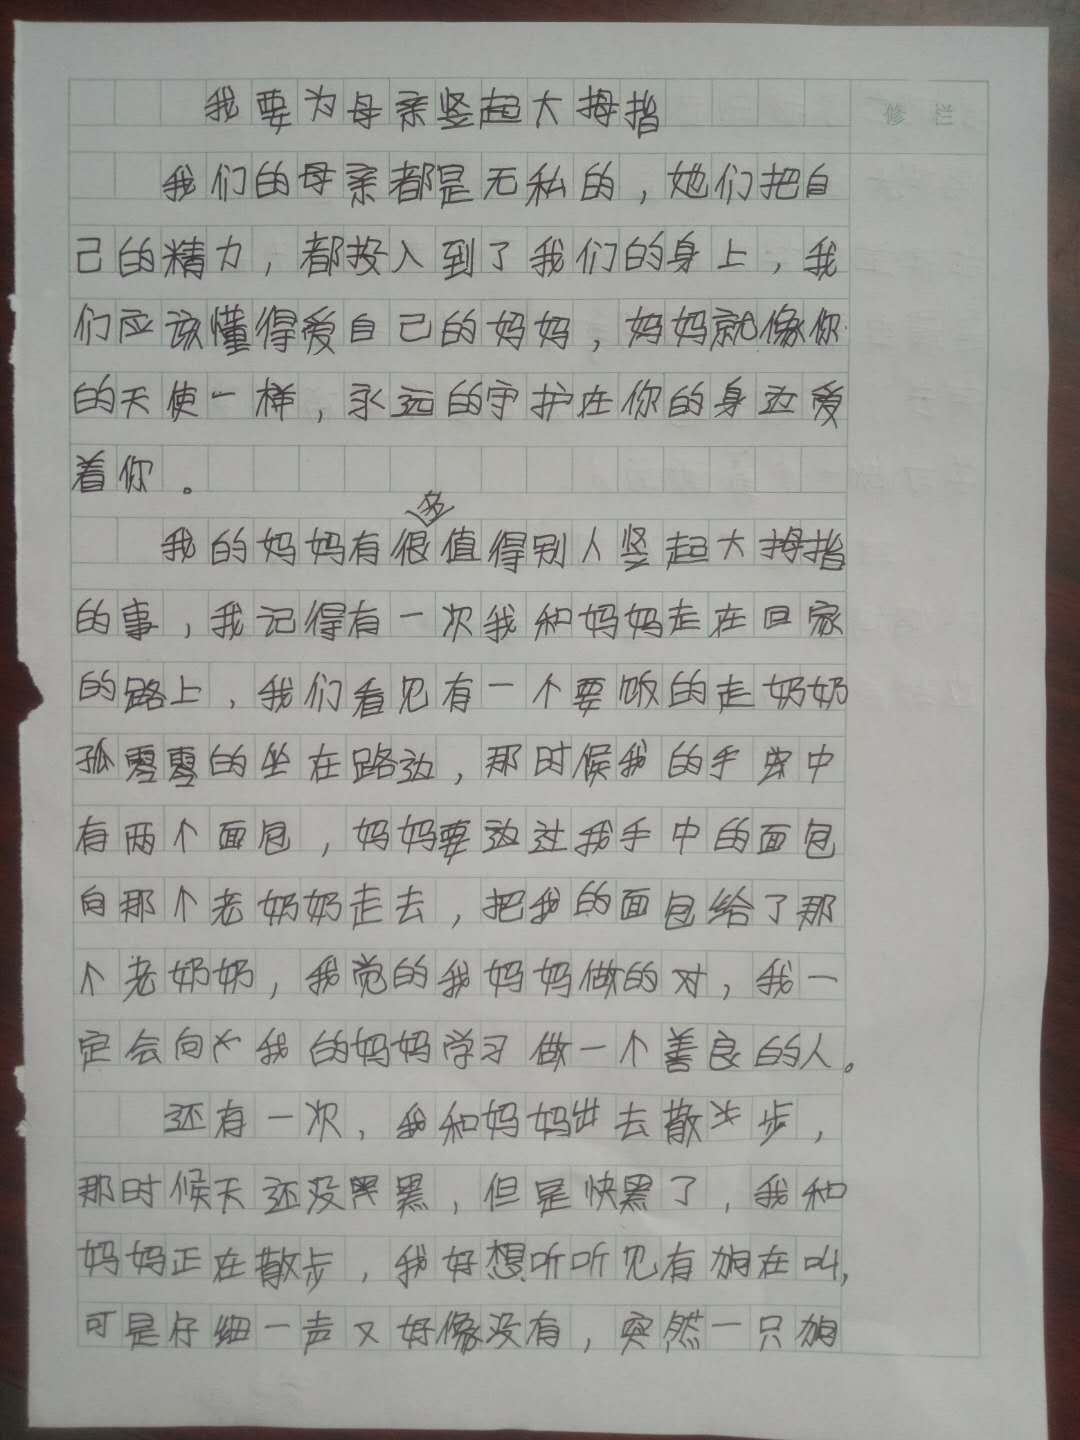 修 栏
我要为母亲竖起大拇指
我们的母亲都是无私的，她们把自
己的精力，都投入到了我们的身上，我
们应该懂得爱自己的妈妈，妈妈就像你
的天使一样，永远的守护在你的身边爱
着你。
我的妈妈有很多值得别人竖起大拇指
的事，我记得有一次我和妈妈走在回家
的路上，我们看见有一个要饭的走奶奶
孤零零的坐在路边，那时候我的手中
有两个面包，妈妈要边过我手中的面包
向那个老奶奶走去，把我的面包给了那
个老奶奶，我觉的我妈妈做的对，我一
定会向我的妈妈学习做一个善良的人。
还有一次，我和妈妈出去散步，
那时候天还没黑，但是快黑了，我和
妈妈正在散步，我好想听听见有在叫，
可是仔细一声又好像没有，突然一只